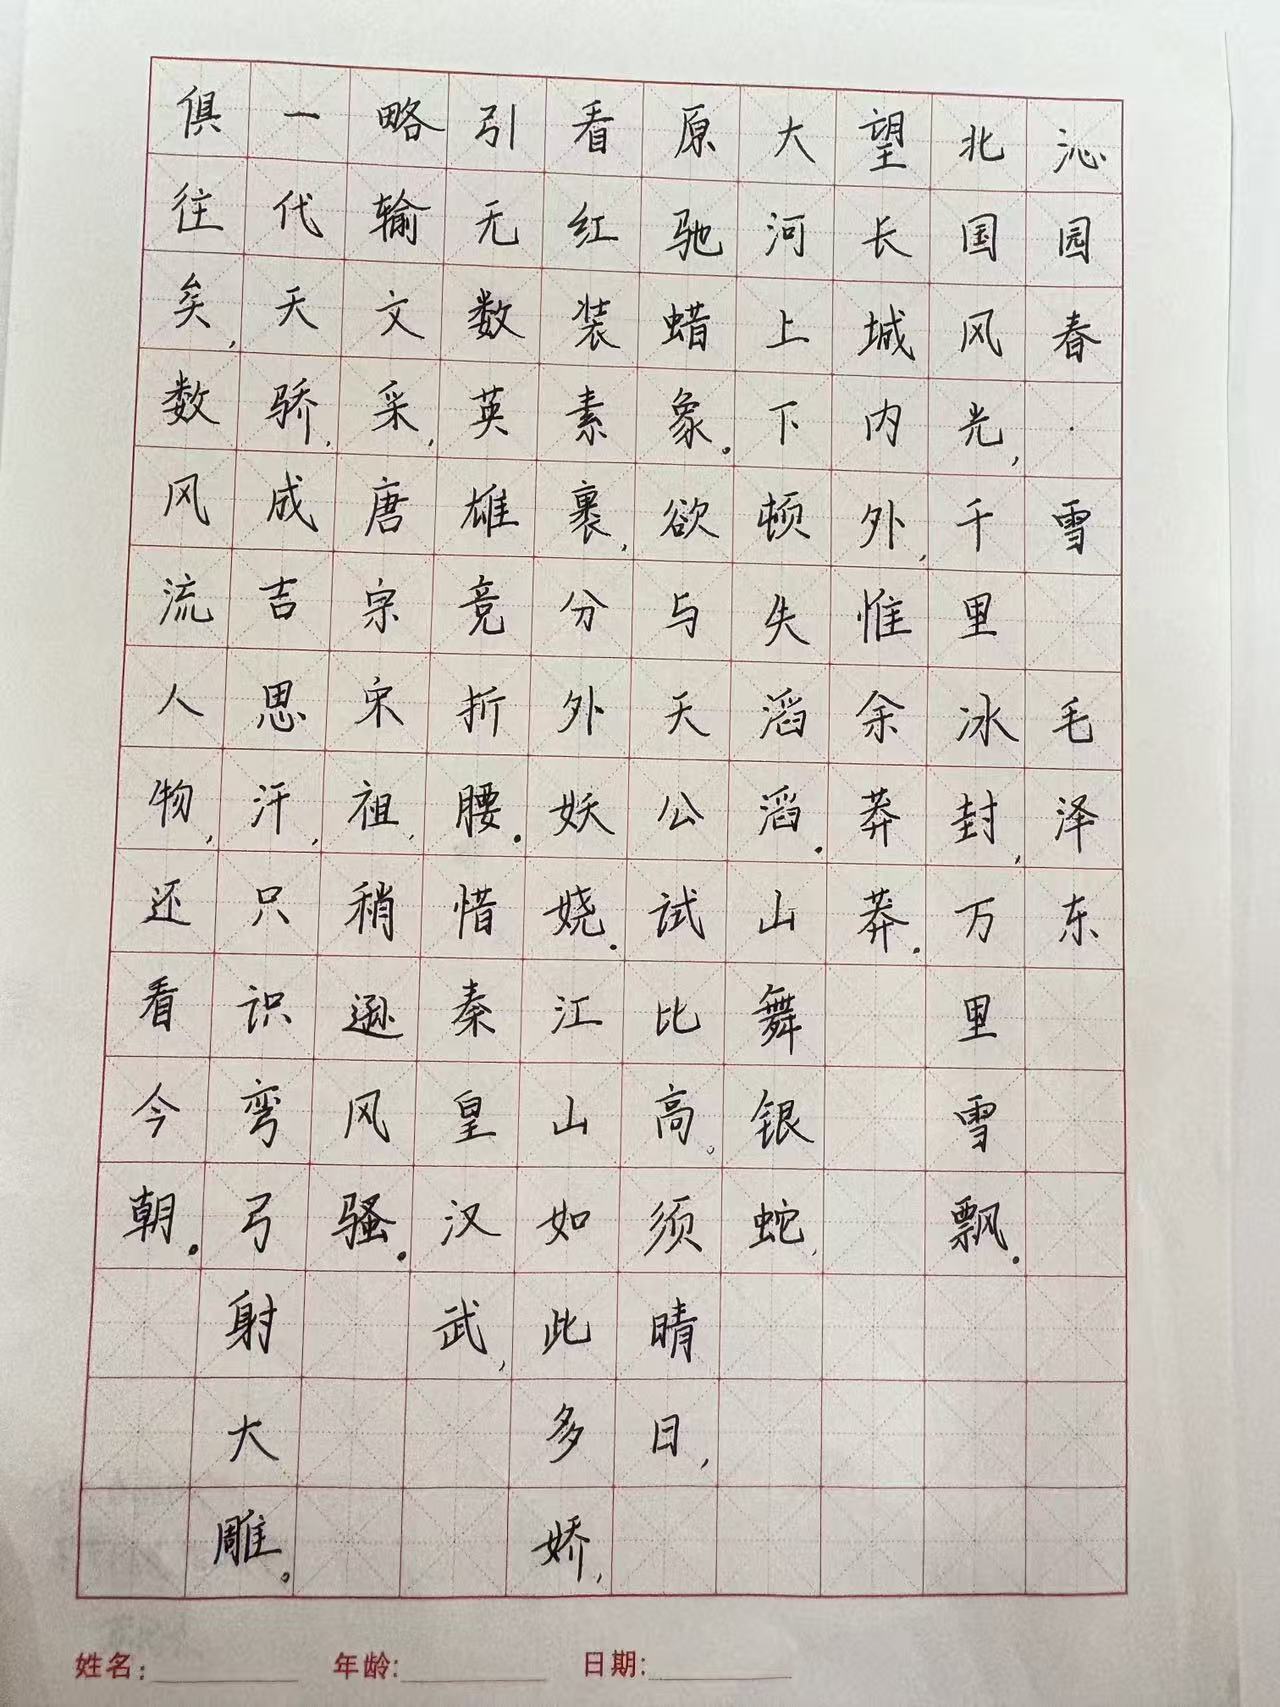 沁园春·雪 毛泽东
北国风光，千里冰封，万里雪飘．
望长城内外，惟余莽莽．
大河上下顿失滔滔．山舞银蛇，
原驰蜡象．欲与天公试比高。须晴日，
看红装素裹，分外妖娆．江山如此多娇，
引无数英雄竞折腰．惜秦皇汉武，
略输文采，唐宗宋祖，稍逊风骚．
一代天骄，成吉思汗，只识弯弓射大雕。
俱往矣，数风流人物，还看今朝．
姓名：　年龄：　日期：